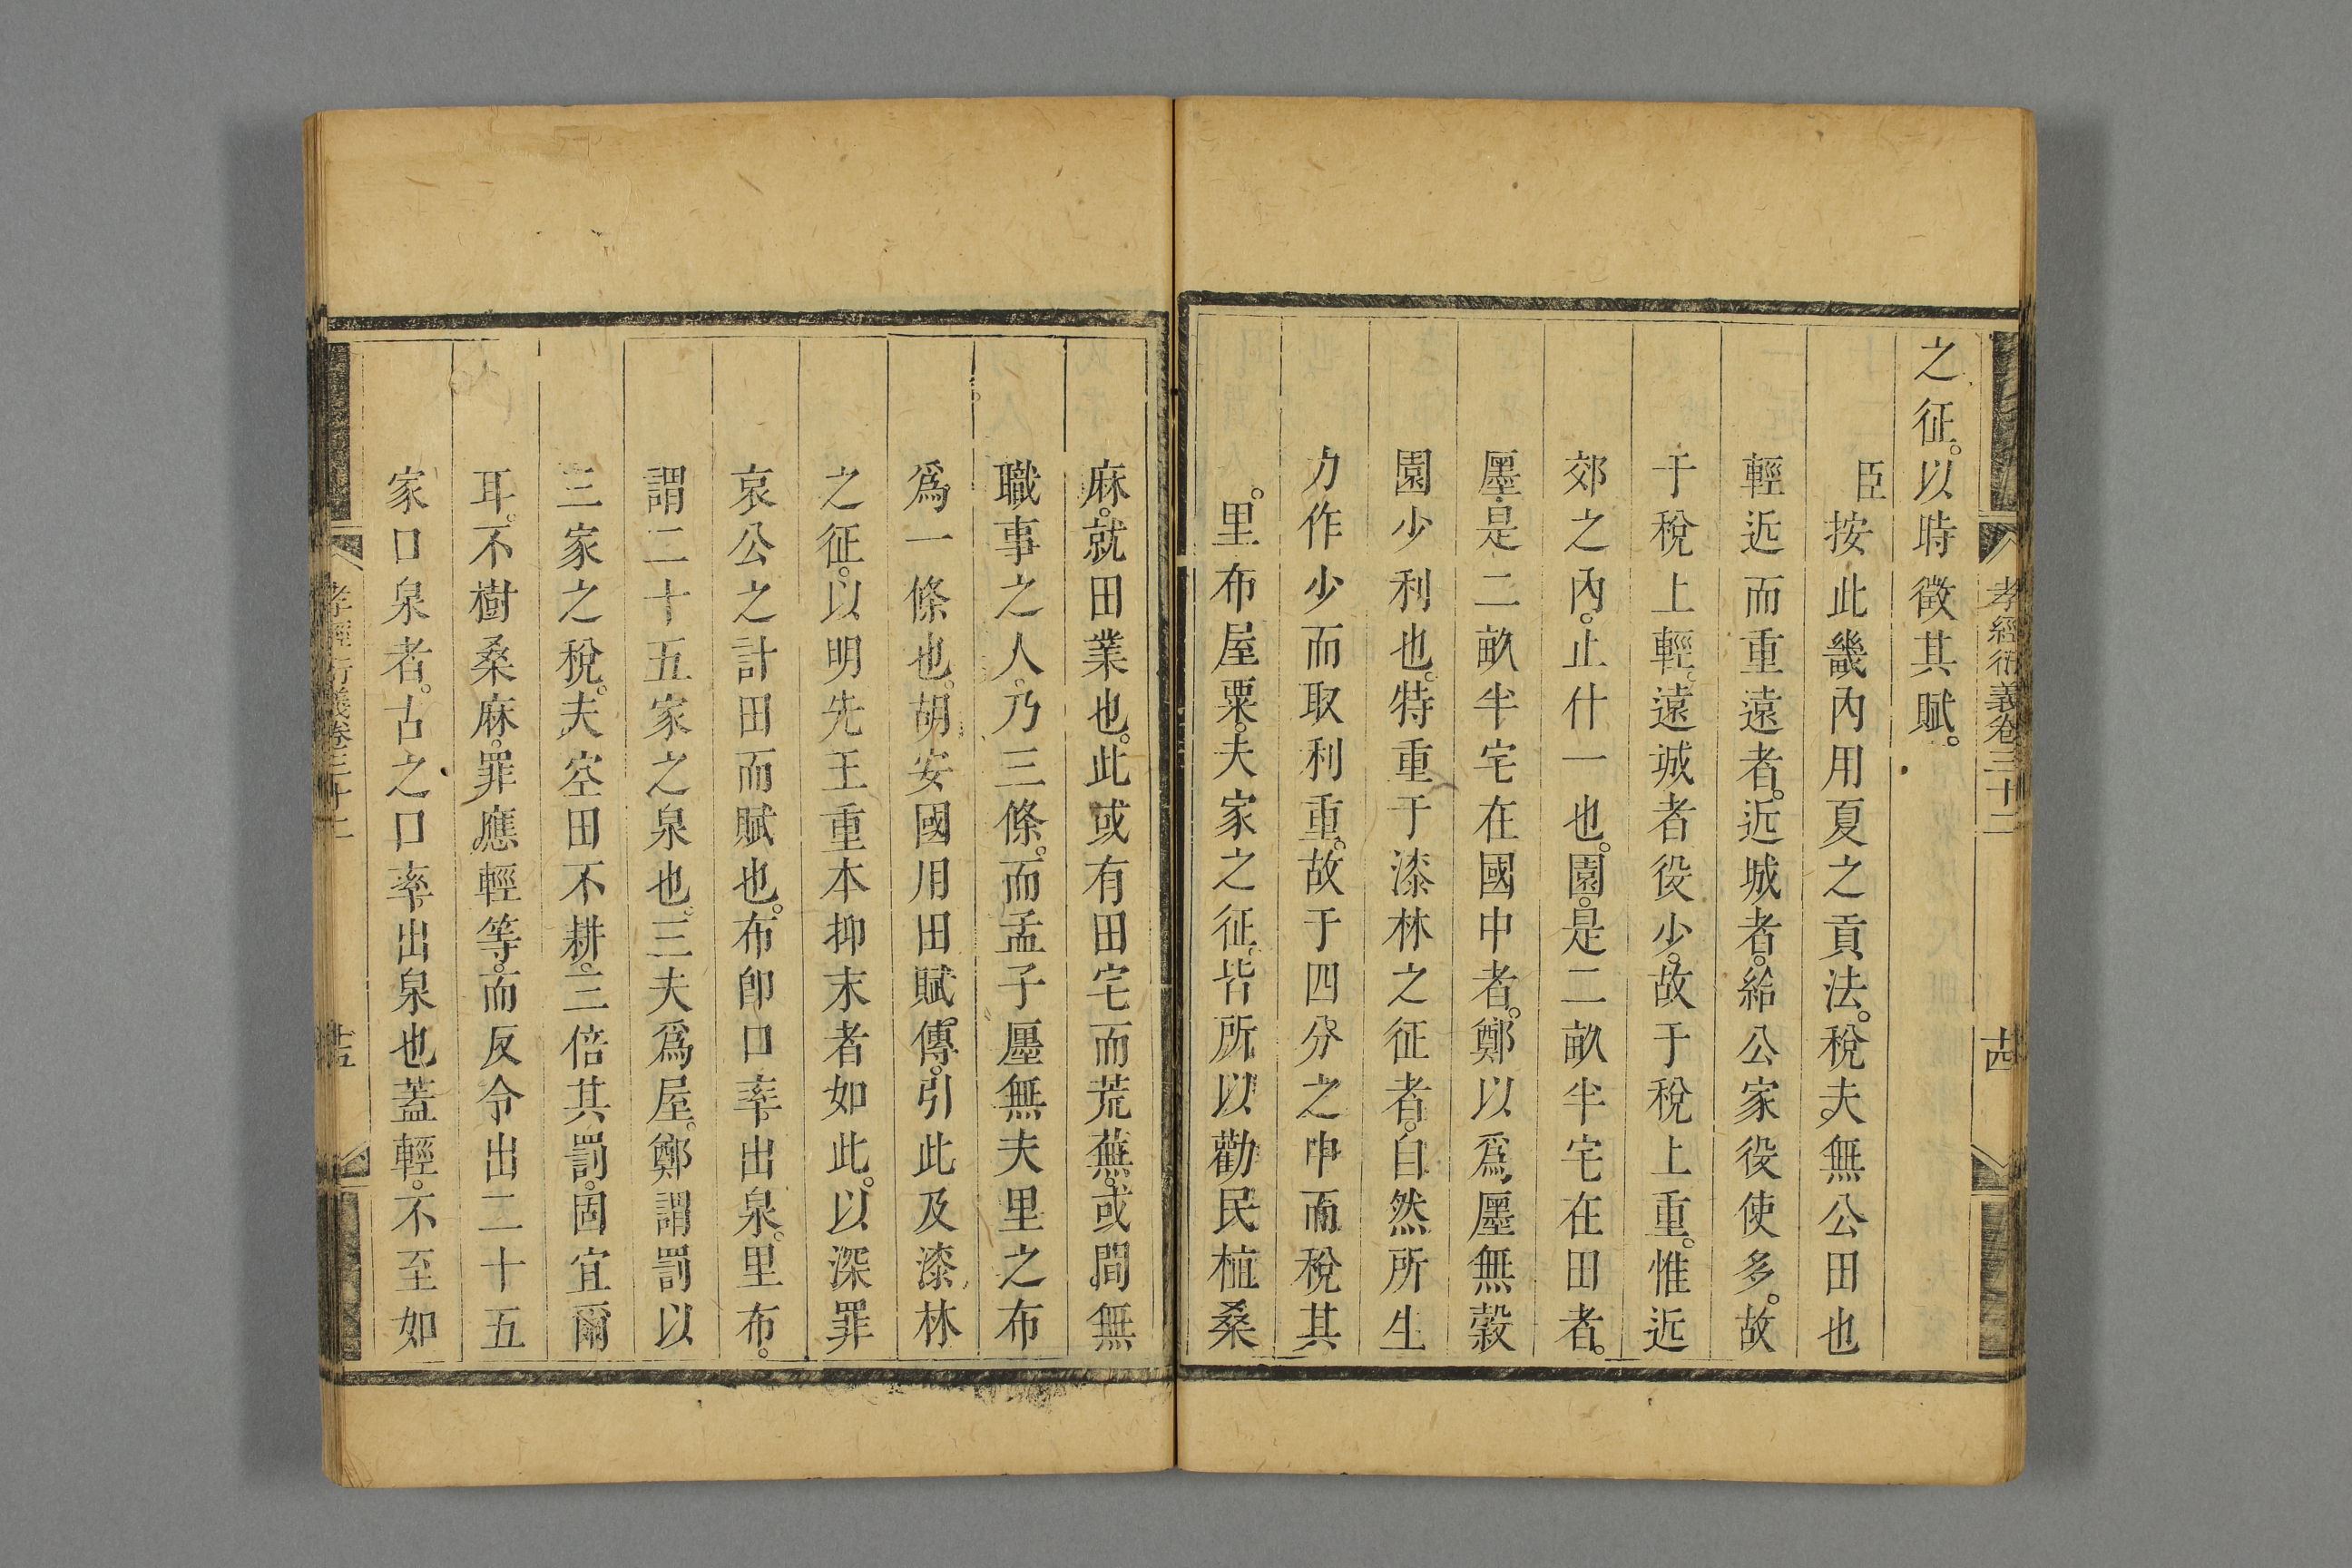 孝經衍義卷三十二
十四
之征。以時徵其賦。
臣按此畿內用夏之貢法。稅夫。無公田也
輕近而重遠者。近城者。給公家役使多。故
于稅上輕。遠城者役少。故于稅上重。惟近
郊之內。止什一也。園。是二畝半宅在田者。
廛。是二畝半宅在國中者。鄭以爲廛無榖
園少利也。特重于漆林之征者。自然所生
力作少而取利重。故于四分之中而稅其
。里布屋粟。夫家之征。皆所以勸民植桑
麻。就田業也。此或有田宅而荒蕪。或閒無
職事之人。乃三條。而孟子廛無夫里之布
爲一條也。胡安國用田賦傳。引此及漆林
之征。以明先王重本抑末者如此。以深罪
哀公之計田而賦也。布卽口率出泉。里布。
謂二十五家之泉也。三夫爲屋。鄭謂罰以
三家之稅。夫空田不耕。三倍其罰。固宜爾
耳。不樹桑麻。罪應輕等。而反令出二十五
家口泉者。古之口率出泉也蓋輕。不至如
孝經衍義卷三十二
十五